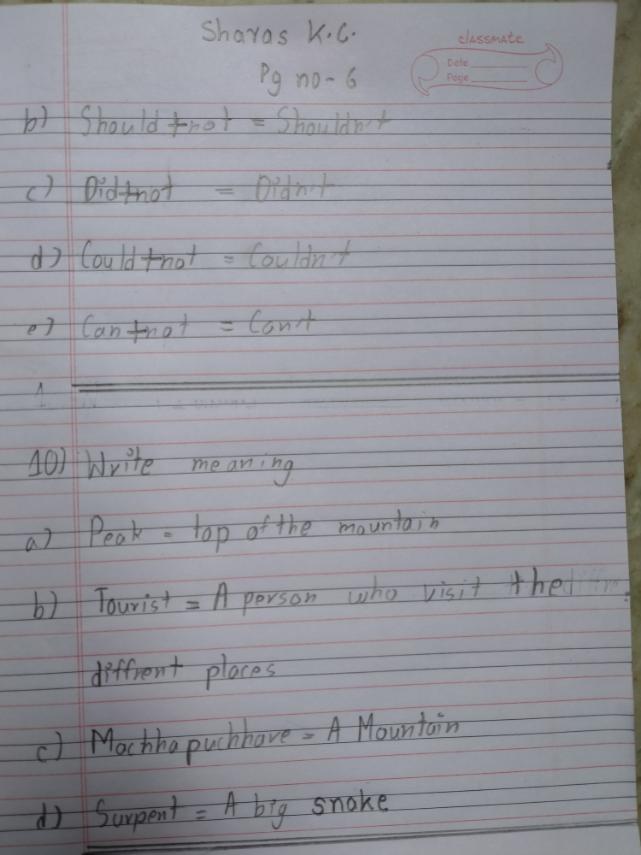 Sharas K.C.
classmate
Date
Page
Pg no-6
b) Should+not = Shouldn't
c) Did+not = Didn't
d) Could+not = Couldn't
e) Can+not = Can't
10) Write meaning
a) Peak = top of the mountain
b) Tourist = A person who visit the
diffrent places
c) Machhapuchhare = A Mountain
d) Surpent = A big snake